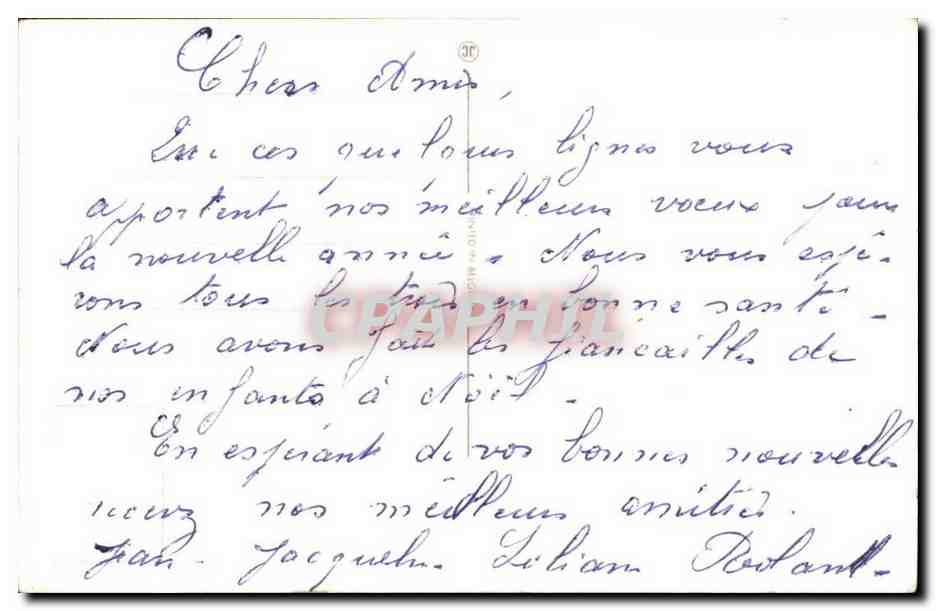 Chers Amis,
Que ces quelques lignes vous
apportent nos meilleurs voeux pour
la nouvelle année. Nous vous espé-
rons tous les trois en bonne santé.
CPAPHIL
Nous avons fait les fiançailles de
nos enfants à Noël.
En espérant de vos bonnes nouvelles
recevez nos meilleurs amitiés.
Jean - Jacqueline Liliane Roland -